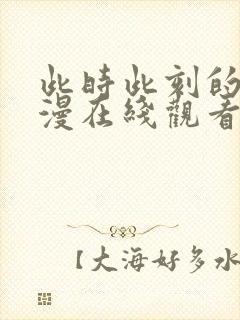 此時此刻的
漫在綫觀看
【大海好多水